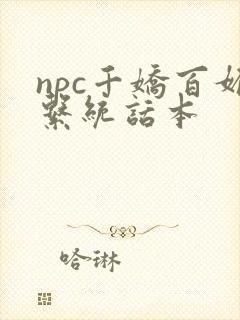 npc千嬌百媚
繫統話本
哈琳